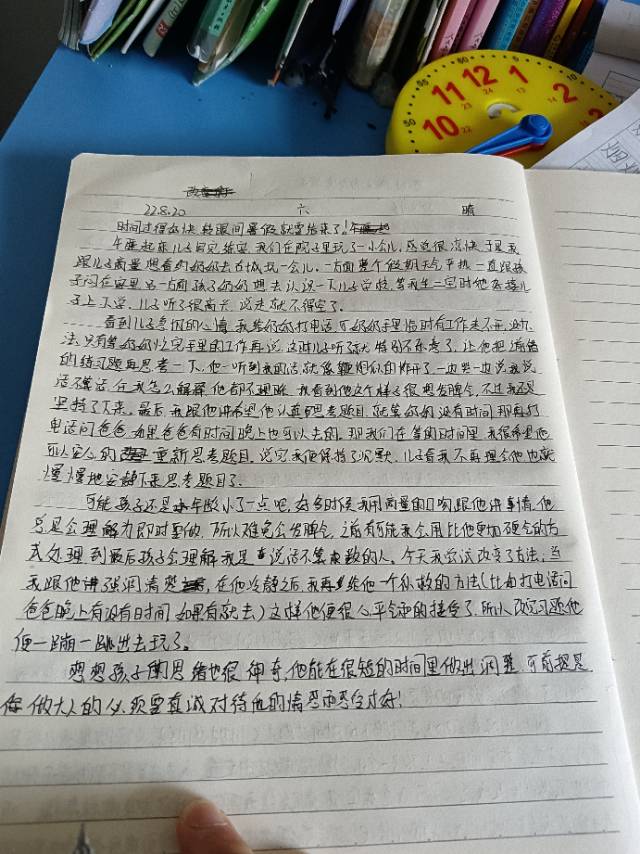 11 12 1 2 10
22.8.20 六 晴
时间过得好快,转眼间暑假就要结束了!
午睡起来儿子自完练完我们在院子里玩了一小会儿,感觉很凉快,于是我
跟儿子商量想看约奶奶去古城玩一会儿。一方面整个假期天气干热一直跟孩
子闷在家里另一方面孩子奶奶想去认识一下儿子学校,等我生二宝时他来接儿
子上下学。儿子听了很高兴,说走就不得空了。
看到儿子急切的心情,我给奶奶打电话,可奶奶手里临时有工作走不开,没办
法,只有等奶奶忙完手里的工作再说,这时儿子听了就特别不乐意了,让他把
的练习题再思考一下,他一听到我的话就像鞭炮似的炸开了,一边哭一边说我说
话不算话,任我怎么解释他都不理睬,我看到他这个样子很想发脾气,不过我还是
坚持了下来。最后,我跟他讲希望他认真思考题目,就算奶奶没有时间,那再打
电话问爸爸,如果爸爸有时间晚上也可以去的。那我们在等的时间里,我很希望他
可以安心的重新思考题目。说完我便保持了沉默,儿子看我不再理会他也就
慢慢地安静下来思考题目了。
可能孩子还是年龄小了一点吧,好多时候我用商量的口吻跟他讲事情,他
总是会理解为即时要做,所以难免会发脾气,之前有可能我会用比他更加硬气的方
式处理,到最后孩子会理解我是说话不算数的人。今天我尝试改变了方法,当
我跟他讲强调清楚,在他冷静之后,我再给他一个积极的方法(比如打电话问
爸爸晚上有没有时间,如果有就去)这样他便很心平气和的接受了,所以改完习题他
便一蹦一跳出去玩了。
想想孩子的思绪也很神奇,他能在很短的时间里做出调整,可前提是
做大人的必须要真诚对待他的情绪感受才好!